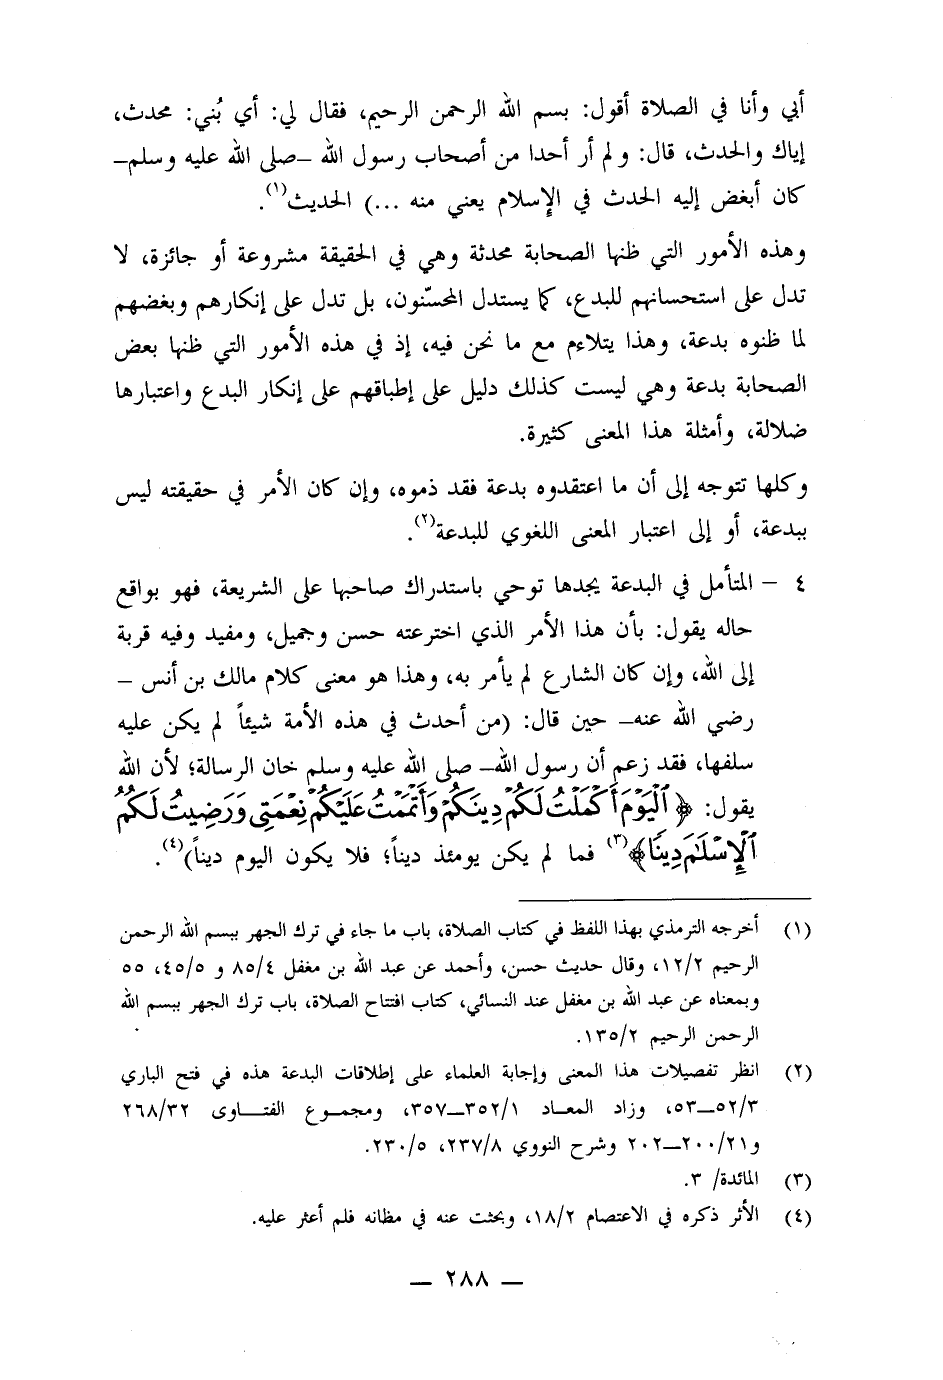 أبي وأنا في الصلاة أقول: بسم الله الرحمن الرحيم، فقال لي: أي بُني: محدث،
إياك والحدث، قال: ولم أر أحدا من أصحاب رسول الله –صلى الله عليه وسلم–
كان أبغض إليه الحدث في الإسلام يعني منه ...) الحديث(١).
وهذه الأمور التي ظنها الصحابة محدثة وهي في الحقيقة مشروعة أو جائزة، لا
تدل على استحسانهم للبدع، كما يستدل المحسّنون، بل تدل على إنكارهم وبغضهم
لما ظنوه بدعة، وهذا يتلاءم مع ما نحن فيه، إذ في هذه الأمور التي ظنها بعض
الصحابة بدعة وهي ليست كذلك دليل على إطباقهم على إنكار البدع واعتبارها
ضلالة، وأمثلة هذا المعنى كثيرة.
وكلها تتوجه إلى أن ما اعتقدوه بدعة فقد ذموه، وإن كان الأمر في حقيقته ليس
ببدعة، أو إلى اعتبار المعنى اللغوي للبدعة(٢).
٤ – المتأمل في البدعة يجدها توحي باستدراك صاحبها على الشريعة، فهو بواقع
حاله يقول: بأن هذا الأمر الذي اخترعته حسن وجميل، ومفيد وفيه قربة
إلى الله، وإن كان الشارع لم يأمر به، وهذا هو معنى كلام مالك بن أنس –
رضي الله عنه– حين قال: (من أحدث في هذه الأمة شيئاً لم يكن عليه
سلفها، فقد زعم أن رسول الله– صلى الله عليه وسلم خان الرسالة؛ لأن الله
يقول: ﴿ ٱلْيَوْمَ أَكْمَلْتُ لَكُمْ دِينَكُمْ وَأَتْمَمْتُ عَلَيْكُمْ نِعْمَتِى وَرَضِيتُ لَكُمُ
ٱلْإِسْلَٰمَ دِينًا﴾(٣) فما لم يكن يومئذ ديناً؛ فلا يكون اليوم ديناً)(٤).
(١) أخرجه الترمذي بهذا اللفظ في كتاب الصلاة، باب ما جاء في ترك الجهر ببسم الله الرحمن
الرحيم ١٢/٢، وقال حديث حسن، وأحمد عن عبد الله بن مغفل ٨٥/٤ و ٤٥/٥، ٥٥
وبمعناه عن عبد الله بن مغفل عند النسائي، كتاب افتتاح الصلاة، باب ترك الجهر ببسم الله
الرحمن الرحيم ١٣٥/٢.
(٢) انظر تفصيلات هذا المعنى وإجابة العلماء على إطلاقات البدعة هذه في فتح الباري
٥٢/٣–٥٣، وزاد المعـاد ٣٥٢/١–٣٥٧، ومجمـوع الفتـاوى ٢٦٨/٣٢
و٢٠٠/٢١–٢٠٢ وشرح النووي ٢٣٧/٨، ٢٣٠/٥.
(٣) المائدة/ ٣.
(٤) الأثر ذكره في الاعتصام ١٨/٢، وبحثت عنه في مظانه فلم أعثر عليه.
– ٢٨٨ –